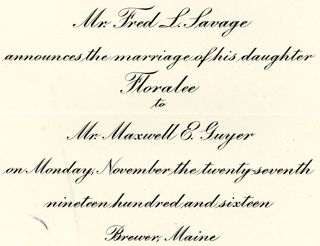 Mr. Fred L. Savage
announces the marriage of his daughter
Floralee
to
Mr. Maxwell E. Guyer
on Monday, November the twenty-seventh
nineteen hundred and sixteen
Brewer, Maine